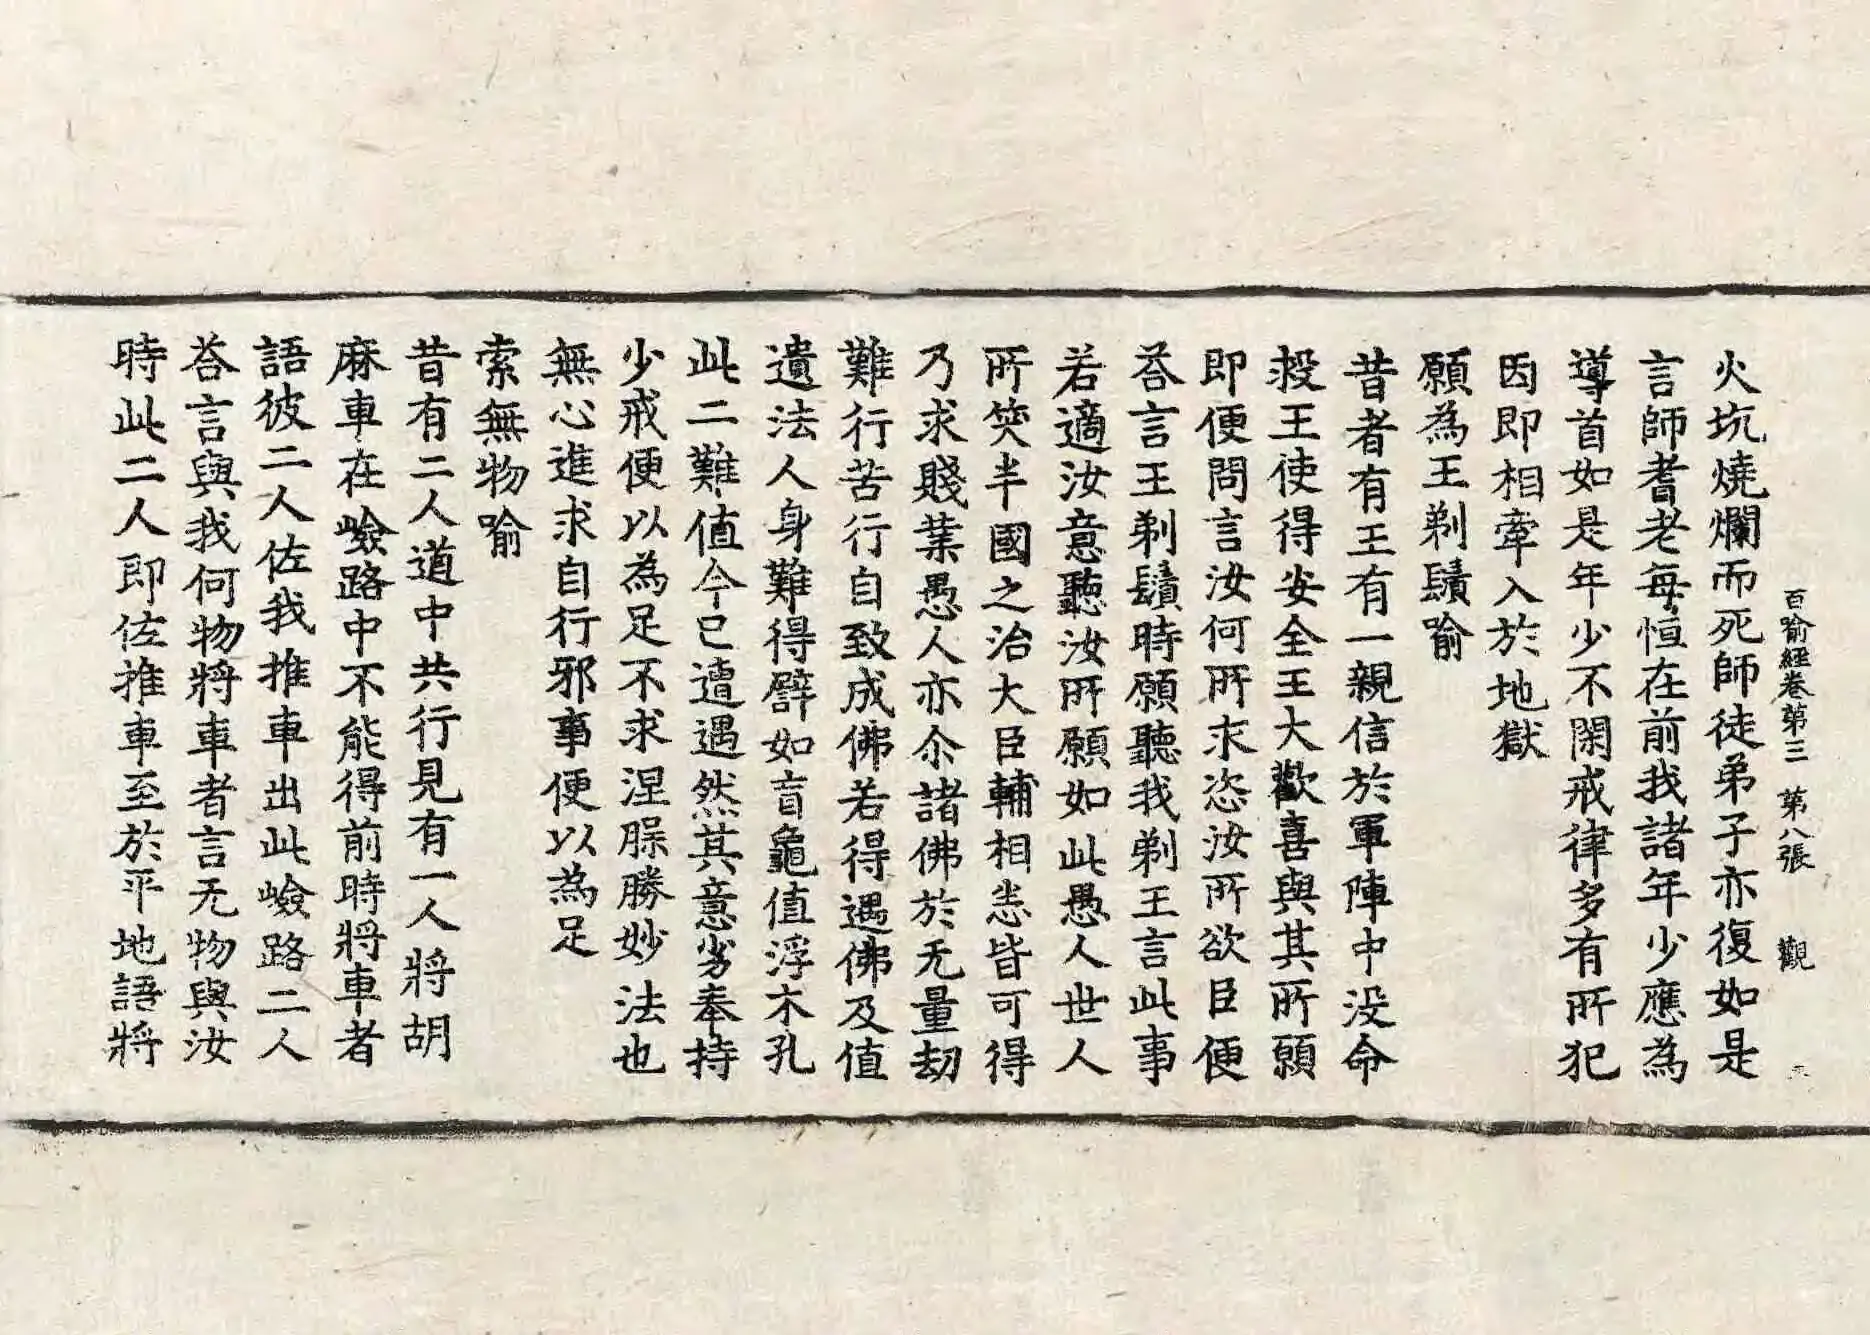 百喻經卷第三 第八張 觀
火坑燒爛而死師徒弟子亦復如是
言師耆老每恒在前我諸年少應為
導首如是年少不閑戒律多有所犯
因即相牽入於地獄
願為王剃鬚喻
昔者有王有一親信於軍陣中没命
投王使得安全王大歡喜與其所願
即便問言汝何所求恣汝所欲臣便
荅言王剃鬚時願聽我剃王言此事
若適汝意聽汝所願如此愚人世人
所笑半國之治大臣輔相悉皆可得
乃求賤業愚人亦尒諸佛於无量劫
難行苦行自致成佛若得遇佛及值
遺法人身難得譬如盲龜值浮木孔
此二難值今已遭遇然其意劣奉持
少戒便以為足不求涅槃勝妙法也
無心進求自行邪事便以為足
索無物喻
昔有二人道中共行見有一人將胡
麻車在嶮路中不能得前時將車者
語彼二人佐我推車出此嶮路二人
荅言與我何物將車者言无物與汝
時此二人即佐推車至於平地語將